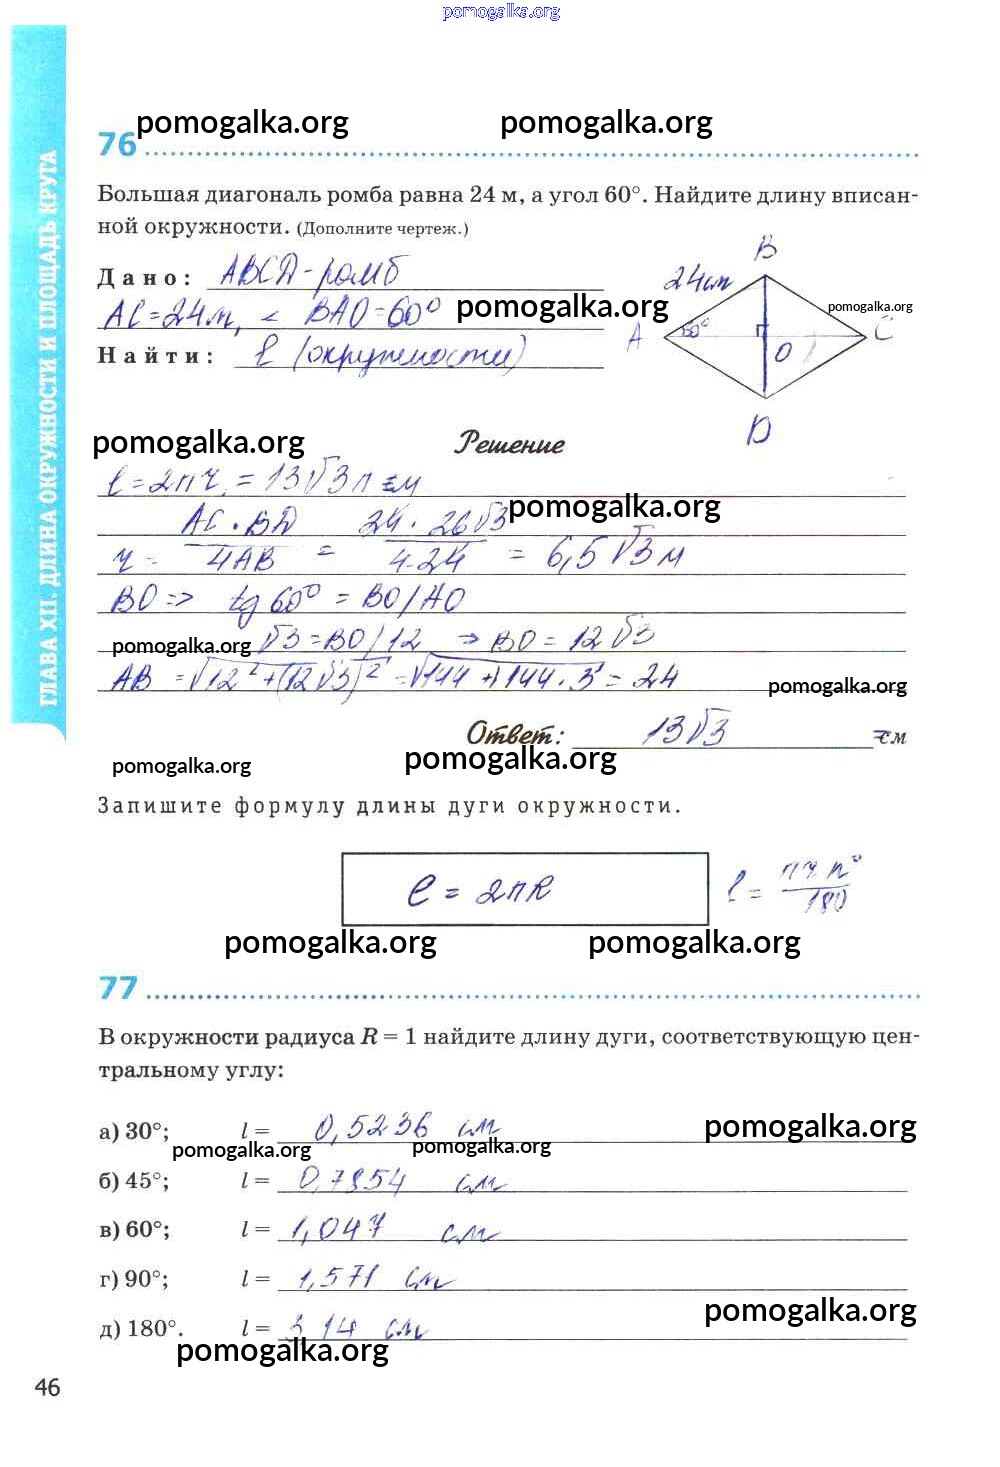 pomogalka.org
ГЛАВА XII. ДЛИНА ОКРУЖНОСТИ И ПЛОЩАДЬ КРУГА
pomogalka.org pomogalka.org
76
Большая диагональ ромба равна 24 м, а угол 60°. Найдите длину вписан-
ной окружности. (Дополните чертеж.)
Дано: ABCD - ромб
AC = 24 м, < BAO = 60° pomogalka.org
Найти: l (окружности)
B
24 см
pomogalka.org
A 60° C
O
D
pomogalka.org Решение
l = 2πr = 13√3 π м
pomogalka.org
r = AC · BD / 4AB = 24 · 26√3 / 4 · 24 = 6,5 √3 м
BO => tg 60° = BO/AO
pomogalka.org √3 = BO/12 => BO = 12√3
AB = √12² + (12√3)² = √144 + 144 · 3 = 24
pomogalka.org
Ответ: 13√3 см
pomogalka.org pomogalka.org
Запишите формулу длины дуги окружности.
l = 2πR l = πr n° / 180
pomogalka.org pomogalka.org
77
В окружности радиуса R = 1 найдите длину дуги, соответствующую цен-
тральному углу:
а) 30°; l = 0,5236 см pomogalka.org
pomogalka.org pomogalka.org
б) 45°; l = 0,7854 см
в) 60°; l = 1,047 см
г) 90°; l = 1,571 см
pomogalka.org
д) 180°. l = 3 14 см
pomogalka.org
46